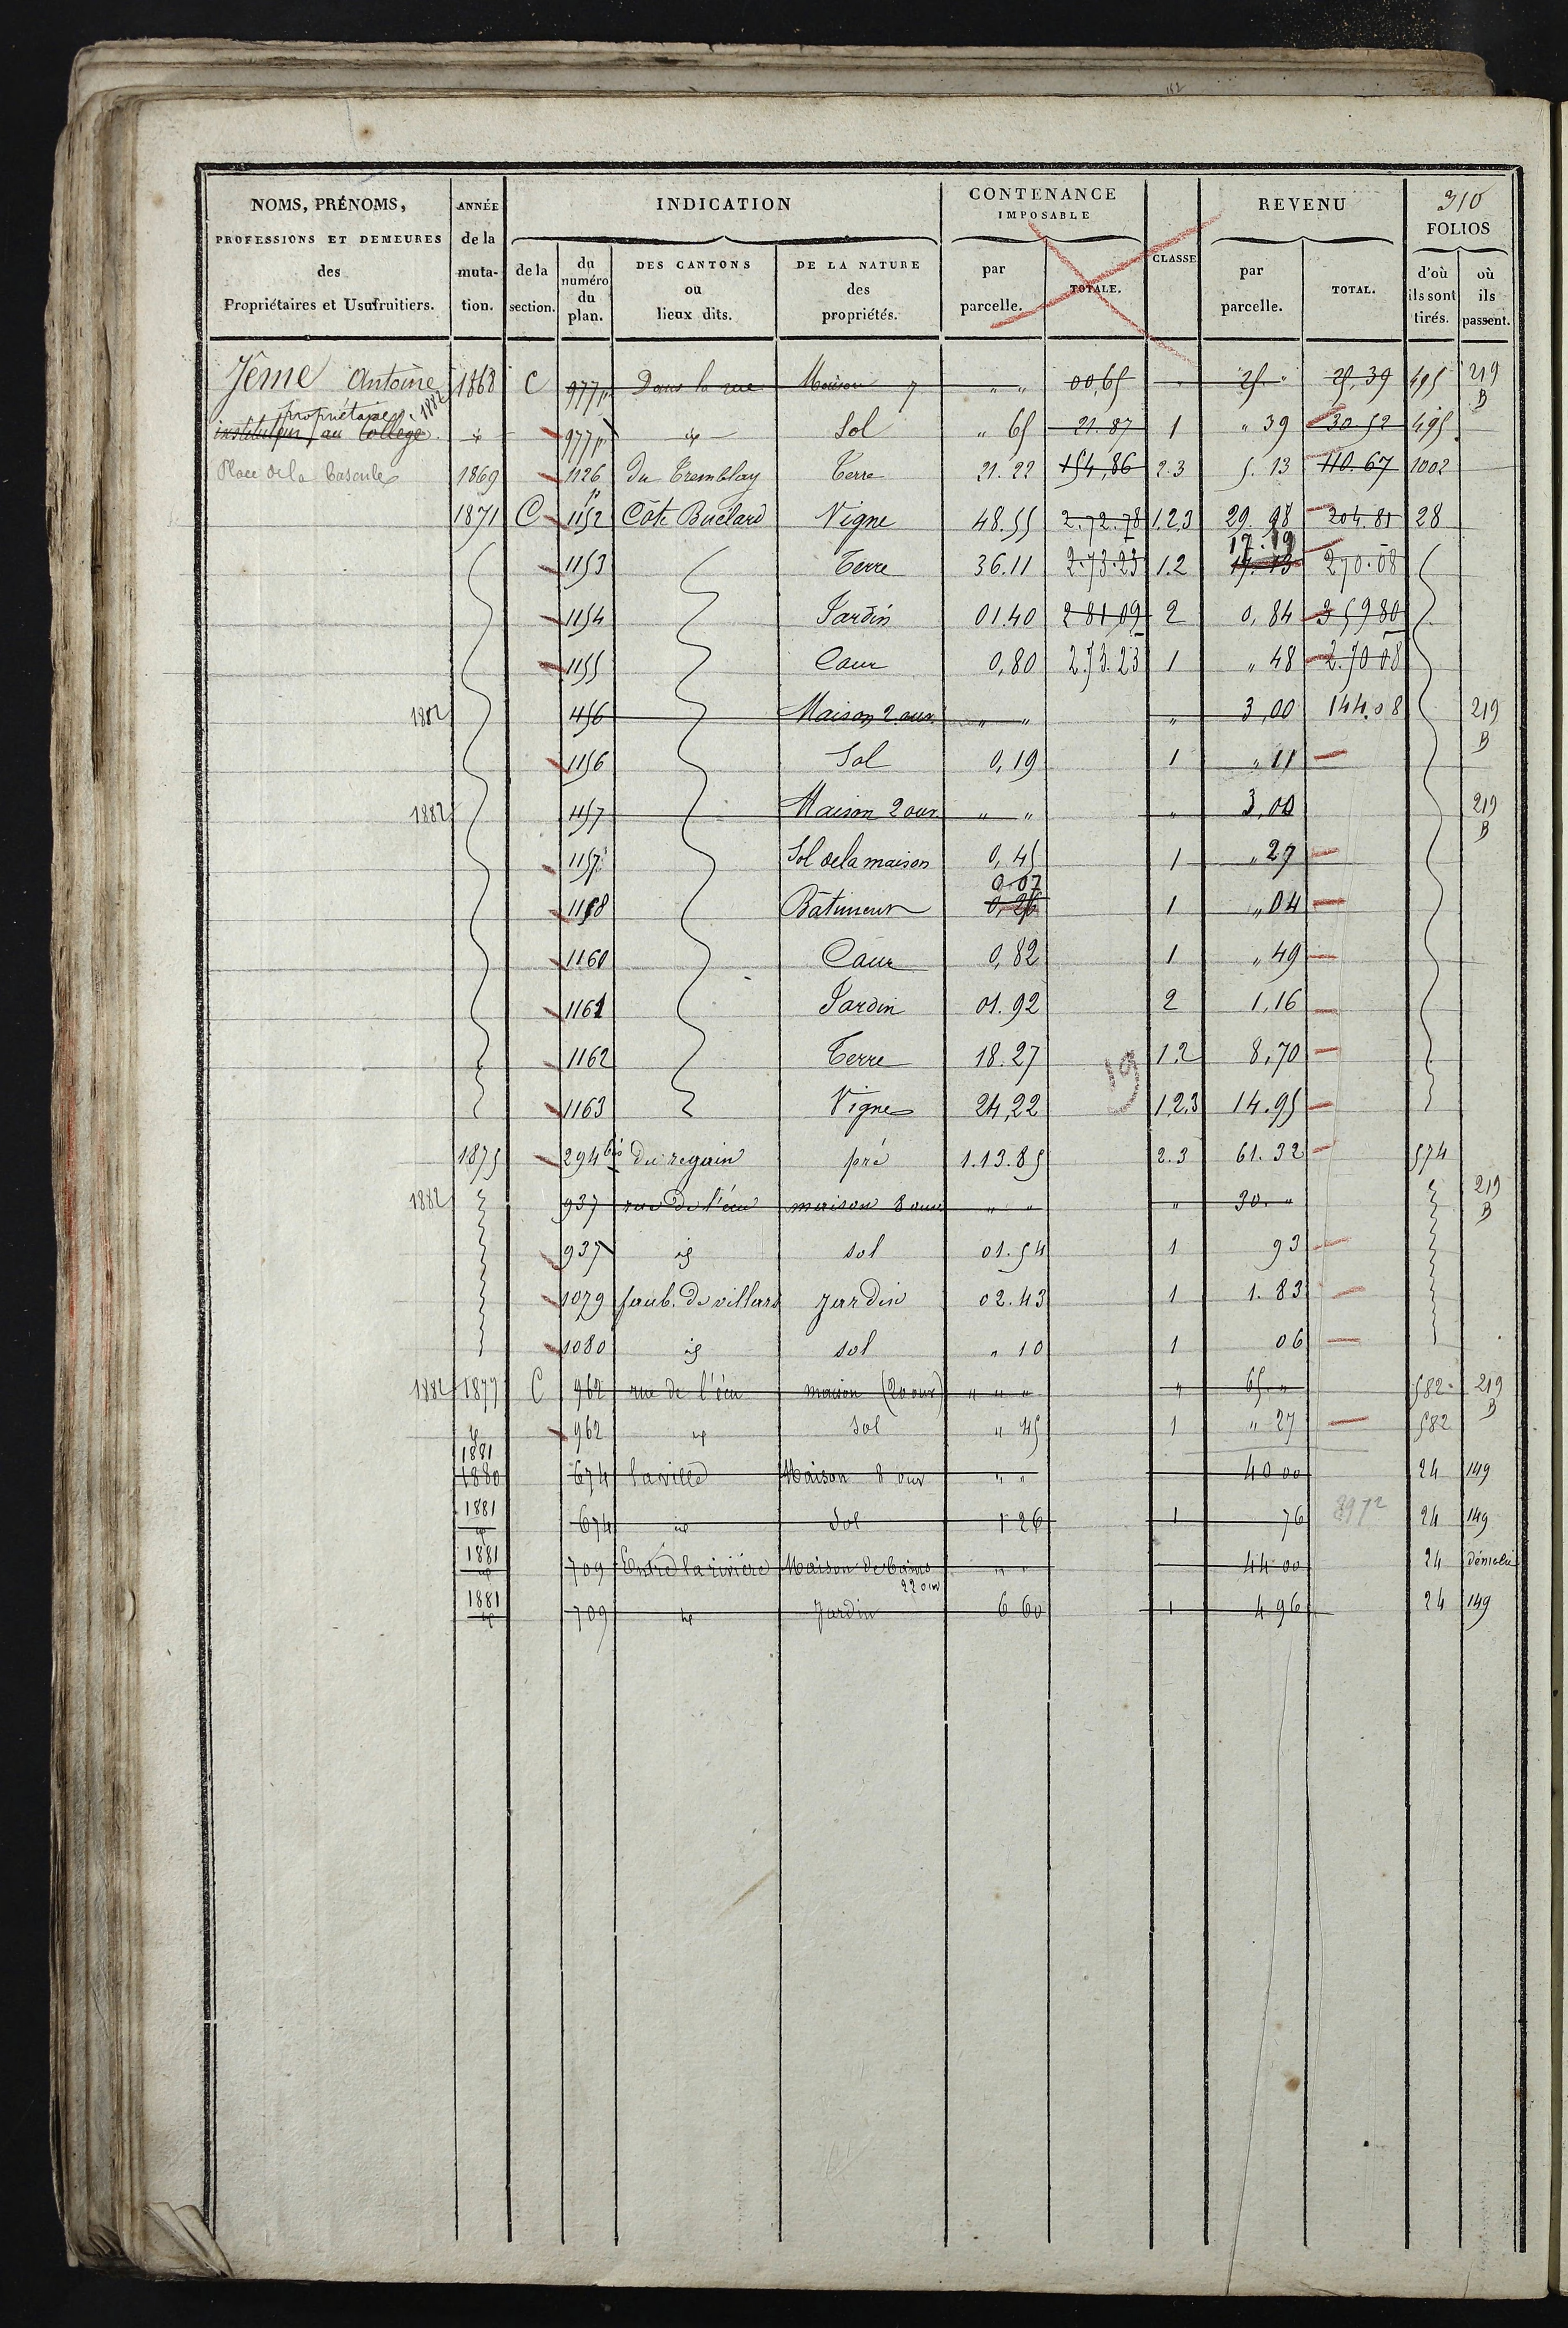 112
NOMS, PRÉNOMS, ANNÉE INDICATION CONTENANCE IMPOSABLE CLASSE REVENU 310 FOLIOS
PROFESSIONS ET DEMEURES des Propriétaires et Usufruitiers. de la mutation. de la section. du numéro du plan. DES CANTONS ou lieux dits. DE LA NATURE des propriétés. par parcelle. TOTALE. par parcelle. TOTAL. d'où ils sont tirés. où ils passent.
Jême Antoine 1868 C 977p Dans la rue Maison 7 " " 00,65 " 25. " 25,39 495 219 B
propriétaire, 1882
instituteur au College. id 977p id Sol " 65 21.87 1 " 39 30 52 495
Place de la Bascule 1869 1126 Du Tremblay Terre 21.22 154,86 2.3 5.13 110.67 1002
1871 C 1152 p Côte Buclard Vigne 48.55 2.72.78 1.2.3 29.98 204.81 28
17.19
1153 Terre 36.11 2.73.23 1.2 17.13 270.08
1154 Jardin 01.40 2 81 09 2 0,84 359 80
1155 Cour 0,80 2.73.23 1 " 48 2.70 08
1882 1156 Maison 2 ouv. " " " 3,00 144.08 219 B
1156 Sol 0,19 1 " 11
1882 1157 Maison 2 ouv " " " 3,00 219 B
1157 Sol de la maison 0,45 1 " 27
0.07
1158 Bâtiment 0,26 1 " 04
1160 Cour 0,82 1 " 49
1161 Jardin 01.92 2 1,16
1162 Terre 18.27 19 1.2 8,70
1163 Vigne 24,22 1.2.3 14.95
1875 294 bis du regain pré 1.13.85 2.3 61.32 574
1882 937 rue de l'écu maison 8 ouv " " " 30. " 219 B
937 id sol 01.54 1 93
1079 faub. de villars jardin 02.43 1 1.83
1080 id sol " 10 1 06
1882 1877 C 962 rue de l'écu maison (20 ouv) " " " " 65. " 582 219 B
id 962 id sol " 45 1 " 27 582
1881
1880 674 la ville Maison 8 ouv " " 40 00 24 149
1881 id 674 id Sol 1 26 1 76 8972 24 149
1881 id 709 Entre la rivière Maison de bains 22 ouv " " 44 00 24 démoli
1881 id 709 id Jardin 6 60 1 4 96 24 149